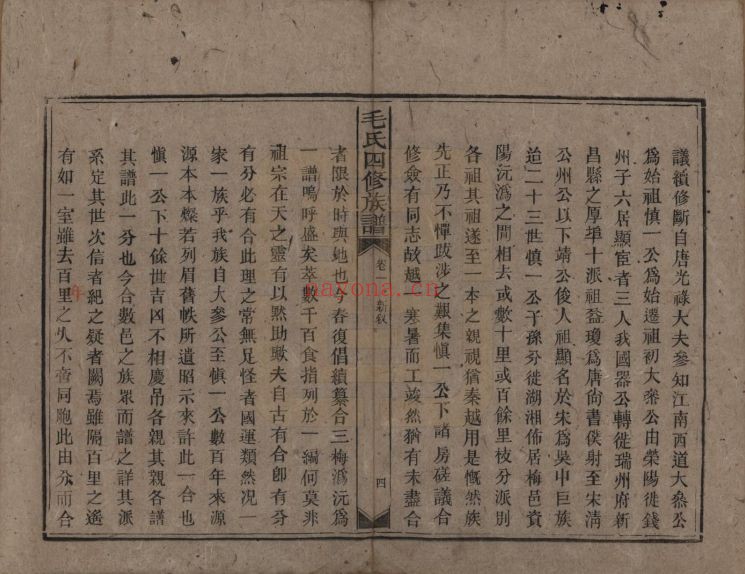 議續修斷自唐光祿大夫參知江南西道大叅公
爲始祖慎一公爲始遷祖初大叅公由滎陽徙錢
州子六居顯宦者三人我國器公轉徙瑞州府新
昌縣之厚埠十派祖益瓊爲唐尙書僕射至宋清
公州公以下靖公俊人祖顯名於宋爲吳中巨族
迨二十三世慎一公子孫分徙湖湘佈居梅邑資
陽沅潙之間相去或數十里或百餘里枝分派別
各祖其祖遂至一本之親視猶秦越用是慨然族
先正乃不憚跋涉之艱集慎一公下諸房磋議合
修僉有同志故越一寒暑而工竣然猶有未盡合
毛氏四修族譜
卷一
新敘
四
者限於時與地也今春復倡續纂合三梅潙沅爲
一譜嗚呼盛矣萃數千百食指列於一編何莫非
祖宗在天之靈有以黙助歟夫自古有合卽有分
有分必有合此理之常無足怪者國運類然况一
家一族乎我族自大參公至慎一公數百年來源
源本本燦若列眉舊帙所遺昭示來許此一合也
慎一公下十餘世吉凶不相慶吊各親其親各譜
其譜此一分也今合數邑之族眾而譜之詳其派
系定其世次信者紀之疑者闕焉雖隔百里之遙
有如一室雖去百里之久不啻同胞此由分而合
naxona.cn